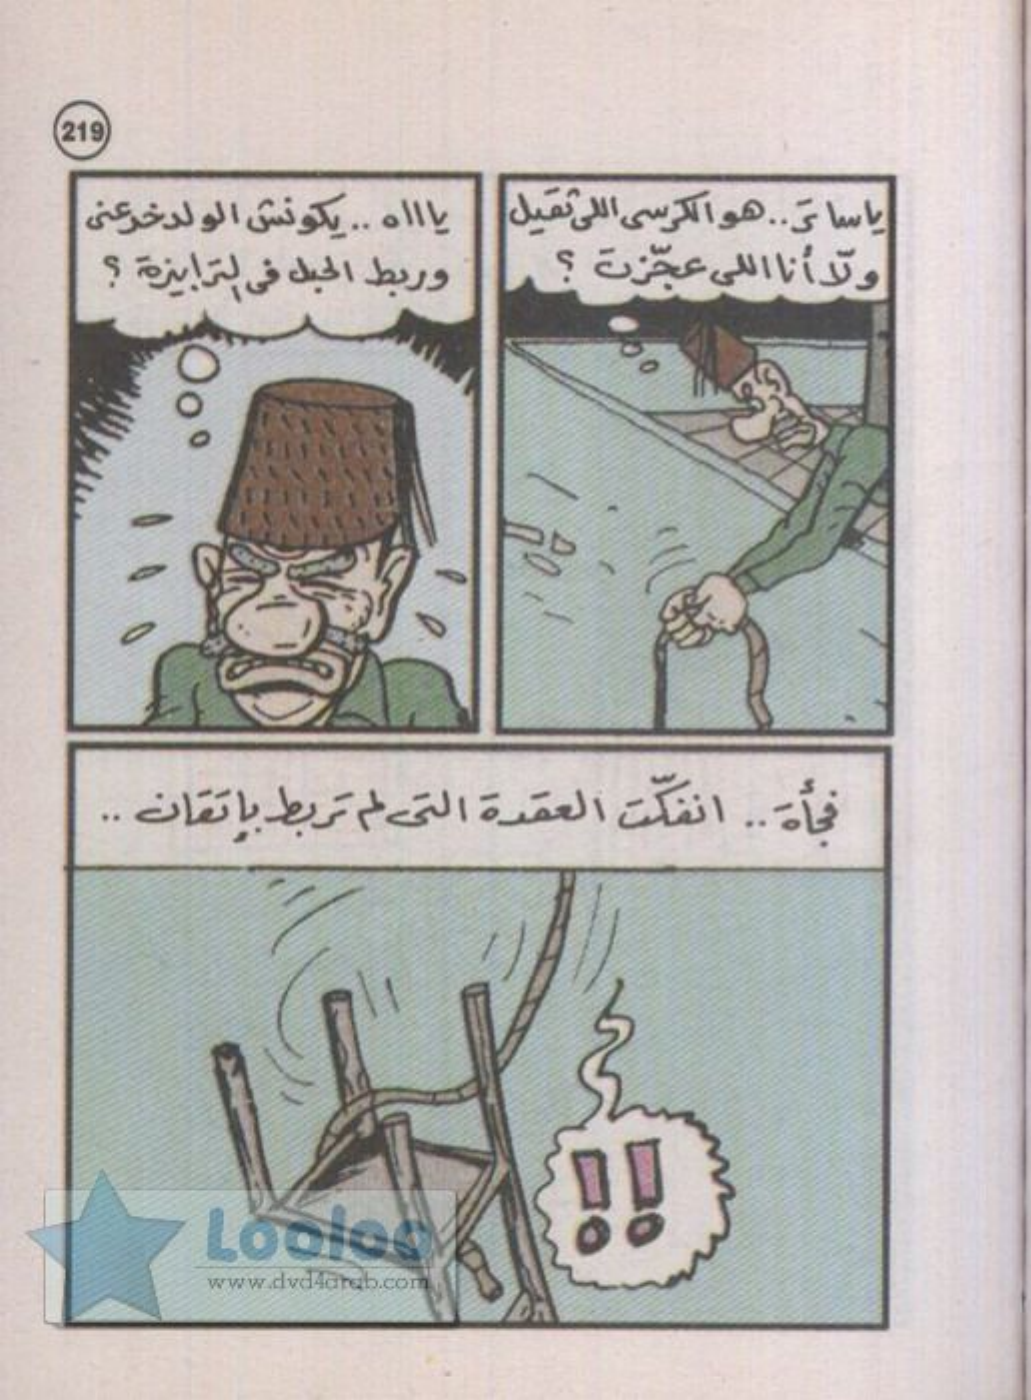 219
ياساتر.. هو الكرسى اللى ثقيل
ولّا أنا اللى عجّزت ؟
ياااه .. يكونش الولد خدعنى
وربط الحبل فى الترابيزة ؟
فجأة .. انفكّت العقدة التى لم تربط بإتقان ..
!!
Looloo
www.dvd4arab.com